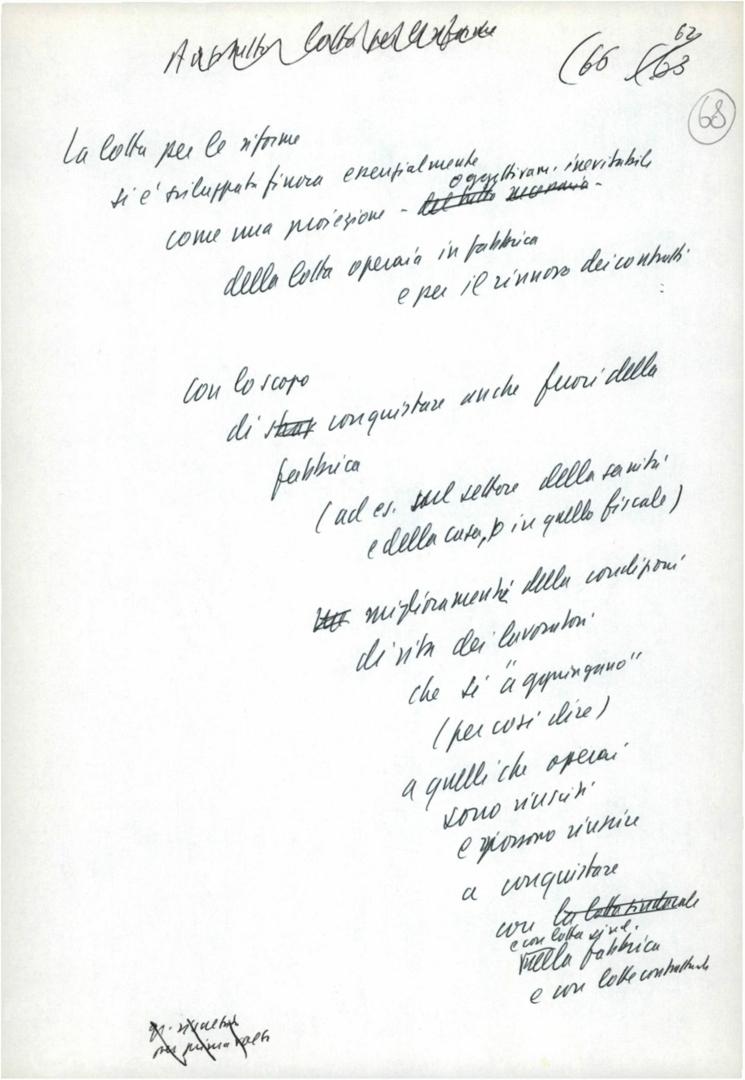 lotta per le riforme
(66 (63
62
68
La lotta per le riforme
si è sviluppata finora essenzialmente
oggettivam. inevitabile
come una proiezione - del tutto necessaria -
della lotta operaia in fabbrica
e per il rinnovo dei contratti
:
con lo scopo
di conquistare anche fuori della
fabbrica
(ad es. nel settore della sanità
e della casa, o in quello fiscale)
miglioramenti della condizioni
di vita dei lavoratori
che si "aggiungano"
(per così dire)
a quelli che operai
sono riusciti
e possono riuscire
a conquistare
con la lotta sindacale
e con lotta sind.
nella fabbrica
e con lotte contrattuali
per prima volta